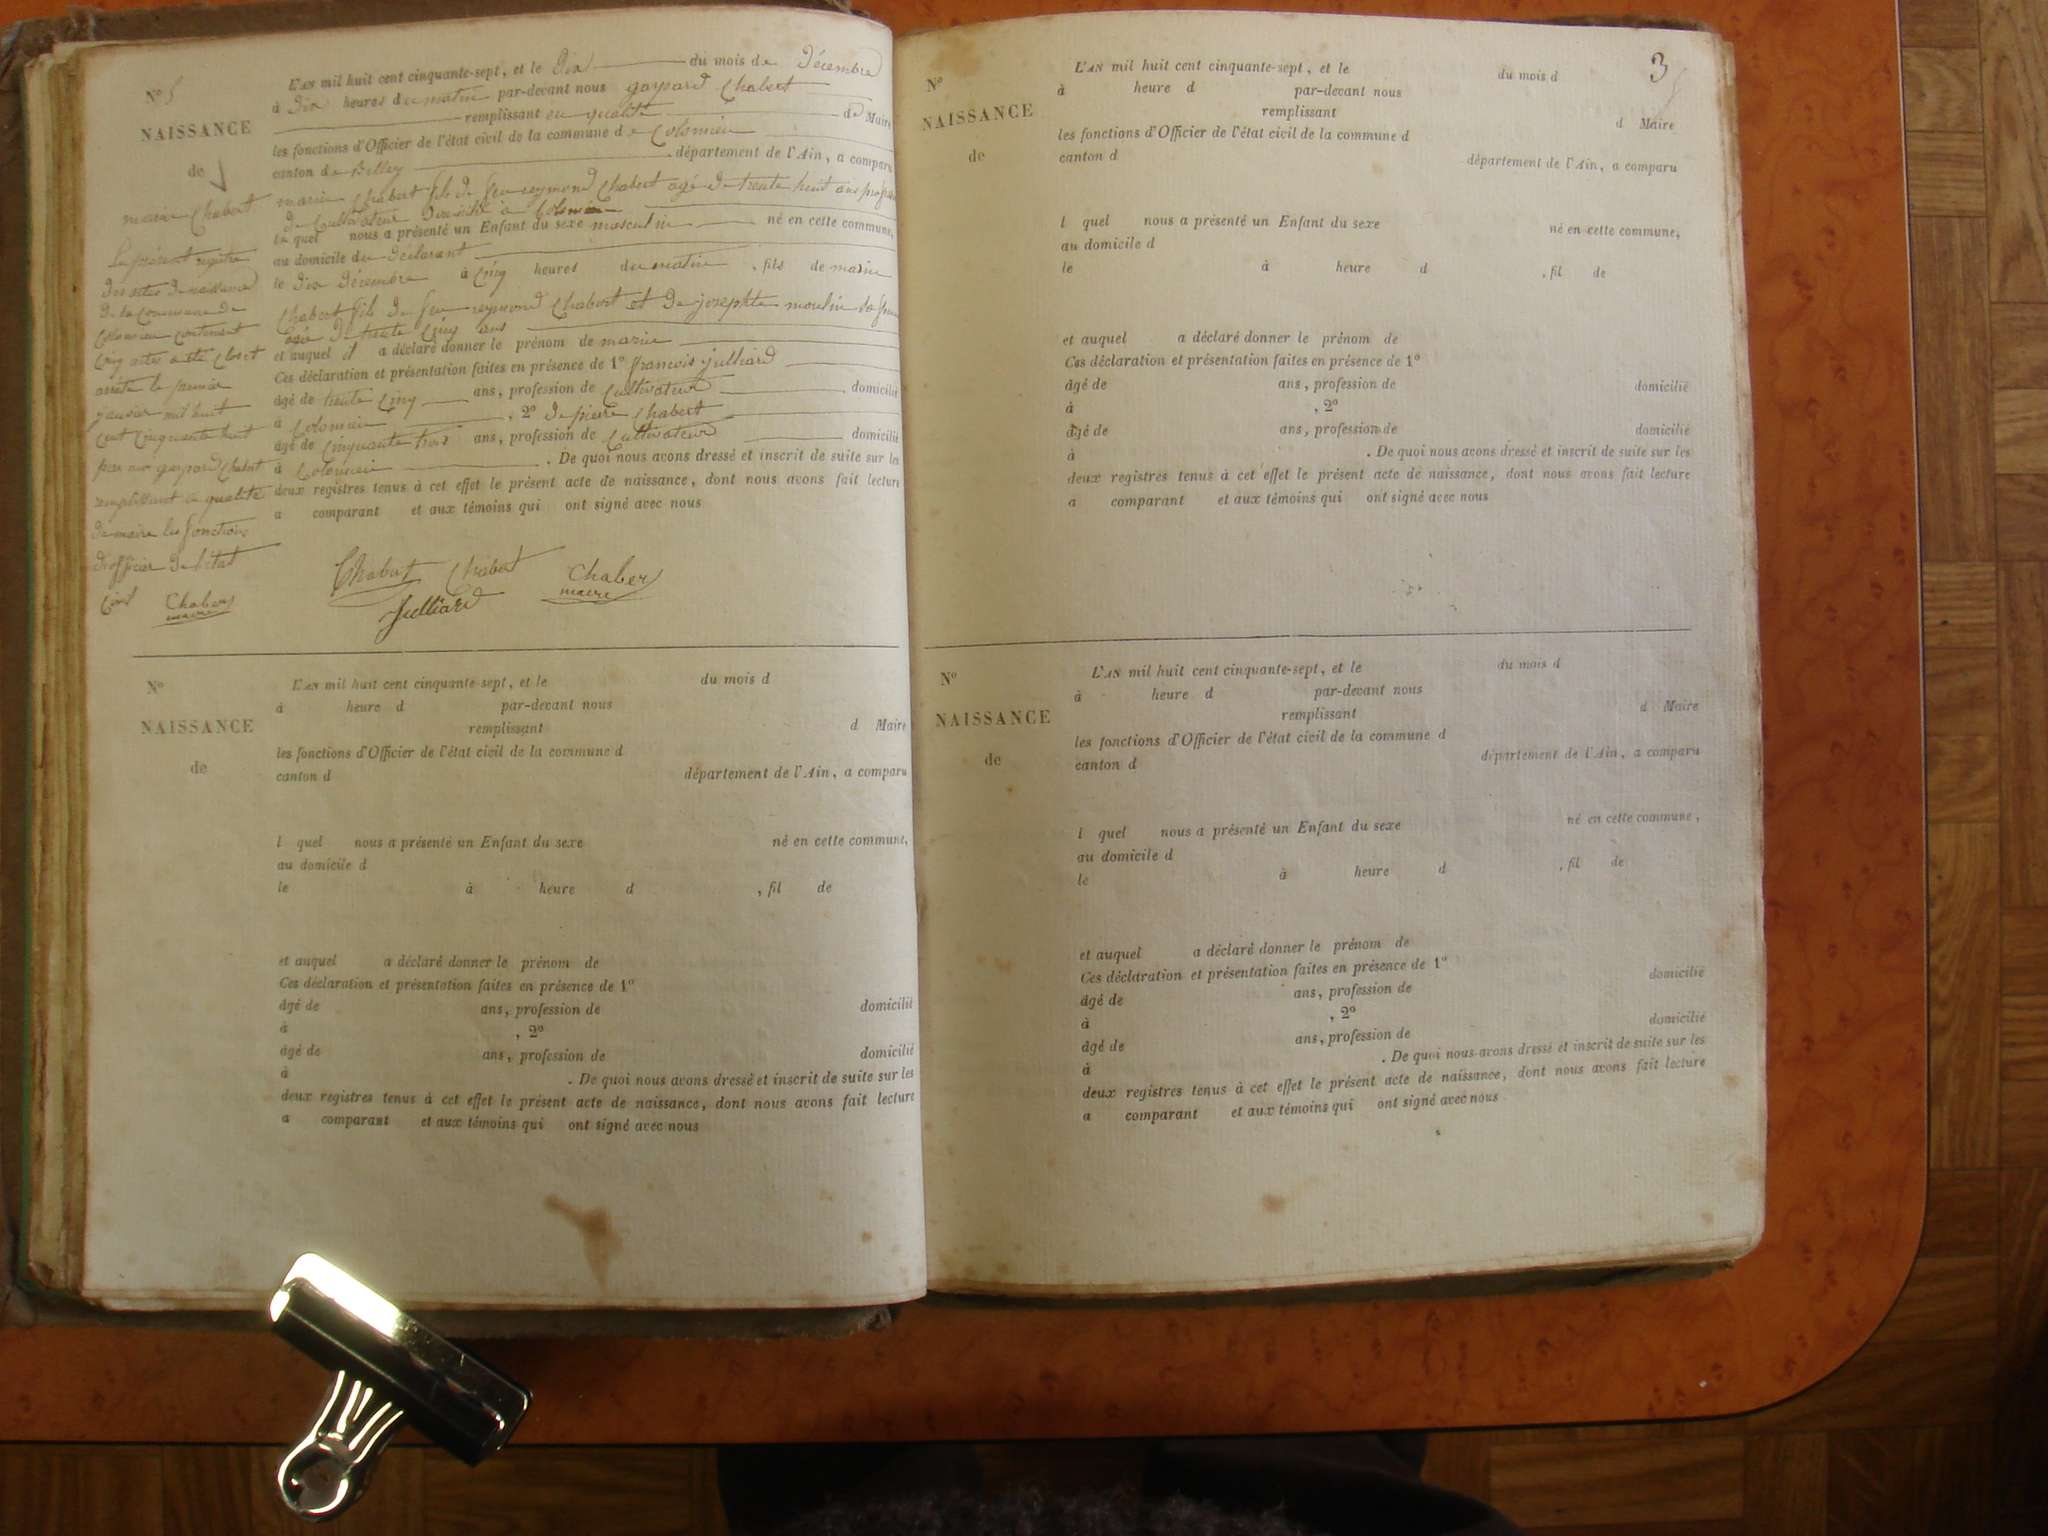 N° 5
NAISSANCE
de
marin Chabert
L'AN mil huit cent cinquante-sept, et le dix du mois de Décembre
à dix heures du matin par-devant nous gaspard Chabert
remplissant en qualité de Maire
les fonctions d'Officier de l'état civil de la commune de Colomieu
canton de Belley département de l'Ain, a comparu
marin Chabert fils de feu reymond Chabert agé de trente huit ans
de Cultivateur domicilié à Colomieu
le quel nous a présenté un Enfant du sexe masculin né en cette commune,
au domicile du déclarant
le dix décembre à Cinq heures du matin, fils de marin
Chabert fils de feu reymond Chabert et de josephte moulin sa
agée de trente Cinq ans
et auquel il a déclaré donner le prénom de marin
Ces déclaration et présentation faites en présence de 1° francois julliard
âgé de trente Cinq ans, profession de Cultivateur domicilié
à Colomieu, 2° de pierre Chabert
âgé de Cinquante trois ans, profession de Cultivateur domicilié
à Colomieu. De quoi nous avons dressé et inscrit de suite sur les
deux registres tenus à cet effet le présent acte de naissance, dont nous avons fait lecture
a comparant et aux témoins qui ont signé avec nous
Chabert Chabert Chaber
maire
Julliard
Le présent registre
des actes de naissance
de la Commune de
Colomieu contenant
Cinq actes a été Clos et
arrêté le premier
janvier mil huit
Cent Cinquante huit
par nous gaspard Chabert
remplissant en qualité
de maire les fonctions
d'officier de l'état
Civil Chaber
maire
N°
NAISSANCE
de
L'AN mil huit cent cinquante-sept, et le du mois d
à heure d par-devant nous
remplissant d Maire
les fonctions d'Officier de l'état civil de la commune d
canton d département de l'Ain, a comparu
l quel nous a présenté un Enfant du sexe né en cette commune,
au domicile d
le à heure d , fil de
et auquel a déclaré donner le prénom de
Ces déclaration et présentation faites en présence de 1°
âgé de ans, profession de domicilié
à , 2°
âgé de ans, profession de domicilié
à . De quoi nous avons dressé et inscrit de suite sur les
deux registres tenus à cet effet le présent acte de naissance, dont nous avons fait lecture
a comparant et aux témoins qui ont signé avec nous
3
N°
NAISSANCE
de
L'AN mil huit cent cinquante-sept, et le du mois d
à heure d par-devant nous
remplissant d Maire
les fonctions d'Officier de l'état civil de la commune d
canton d département de l'Ain, a comparu
l quel nous a présenté un Enfant du sexe né en cette commune,
au domicile d
le à heure d , fil de
et auquel a déclaré donner le prénom de
Ces déclaration et présentation faites en présence de 1°
âgé de ans, profession de domicilié
à , 2°
âgé de ans, profession de domicilié
à . De quoi nous avons dressé et inscrit de suite sur les
deux registres tenus à cet effet le présent acte de naissance, dont nous avons fait lecture
a comparant et aux témoins qui ont signé avec nous
N°
NAISSANCE
de
L'AN mil huit cent cinquante-sept, et le du mois d
à heure d par-devant nous
remplissant d Maire
les fonctions d'Officier de l'état civil de la commune d
canton d département de l'Ain, a comparu
l quel nous a présenté un Enfant du sexe né en cette commune,
au domicile d
le à heure d , fil de
et auquel a déclaré donner le prénom de
Ces déclaration et présentation faites en présence de 1°
âgé de ans, profession de domicilié
à , 2°
âgé de ans, profession de domicilié
à . De quoi nous avons dressé et inscrit de suite sur les
deux registres tenus à cet effet le présent acte de naissance, dont nous avons fait lecture
a comparant et aux témoins qui ont signé avec nous